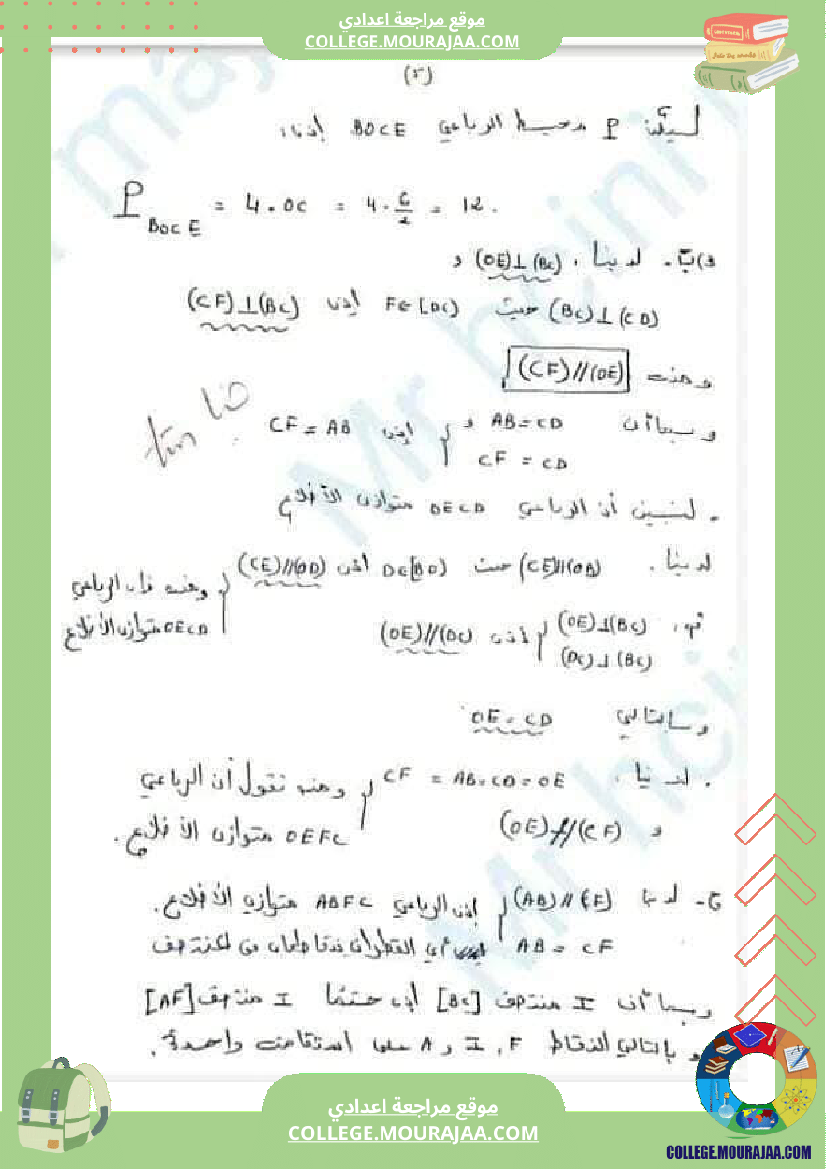 موقع مراجعة اعدادي
COLLEGE.MOURAJAA.COM
ليكن P محيط الرباعي BOCE إذن:
P BOCE = 4.OC = 4.6/2 = 12.
لدينا، (OE)⊥(BC) و
(BC)⊥(CD) حيث F∈[DC) إذن (CF)⊥(BC)
ومنه (CF)//(OE)
وبما أن AB=CD و CF = CD إذن CF = AB
. لنبين أن الرباعي OECD متوازي الأضلاع
لدينا. (CE)//(OB) حيث O∈[BD) إذن (CE)//(OD)
ثم، (OE)⊥(BC) (DC)⊥(BC) إذن (OE)//(DC)
ومنه فإن الرباعي OECD متوازي الأضلاع
وبالتالي OE=CD
. لدينا، CF = AB=CD=OE
و (OE)//(CF) ومنه نقول أن الرباعي OEFC متوازي الأضلاع.
ج- لدينا (AB)//(CF) AB = CF إذن الرباعي ABFC متوازي الأضلاع.
أي القطران يتقاطعان في المنتصف
وبما أن I منتصف [BC] إذن حتما I منتصف [AF]
و بالتالي النقاط F، I و A على استقامة واحدة.
موقع مراجعة اعدادي
COLLEGE.MOURAJAA.COM
COLLEGE.MOURAJAA.COM